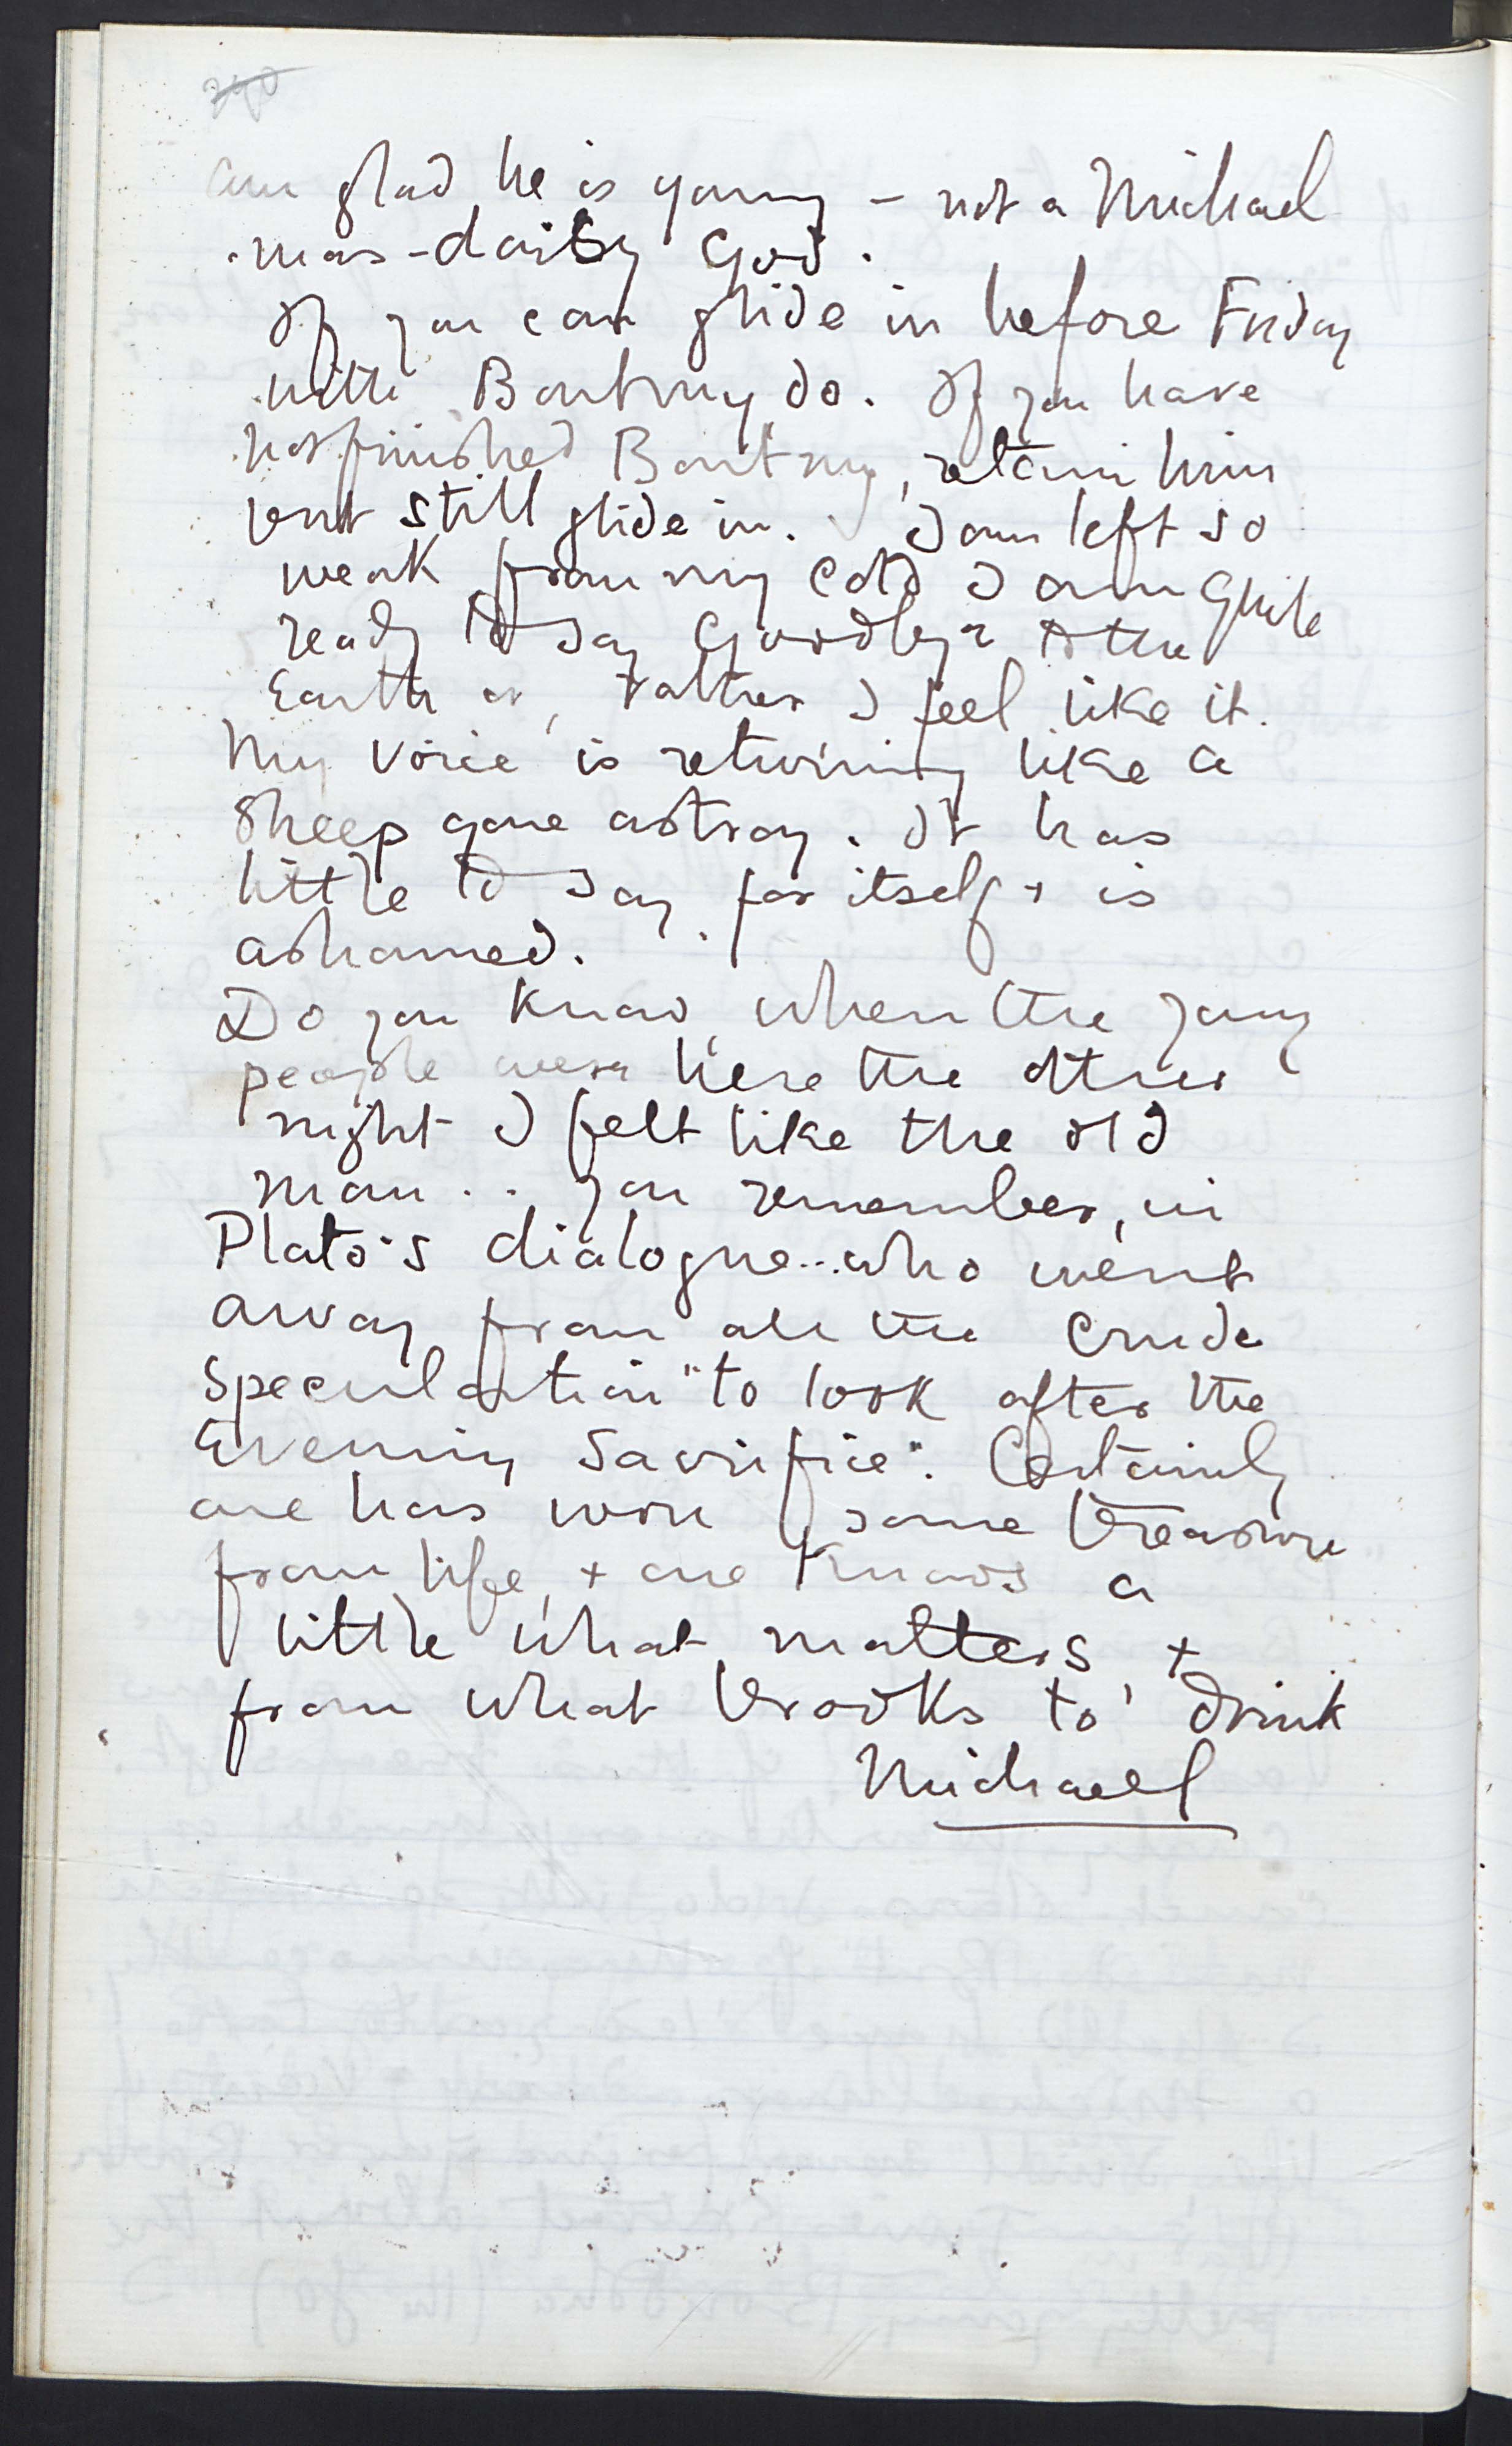 am glad he is young – not a Michael
mas-daisy God.
If you can glide in before Friday
with Boutmy do. If you have
not finished Boutmy, retain him
but still glide in. I am left so
weak from my cold I am quite
ready to say Goodbye to the
Earth or, rather I feel like it.
My voice is returning like a
Sheep gone astray. It has
little to say for itself + is
ashamed.
Do you know, when the young
people were here the other
night I felt like the old
man .. you remember, in
Plato's dialogue... who went
away from all the crude
speculation "to look after the
Evening Sacrifice". Certainly
one has won some treasure
from life, + one knows a
little what matters +
from what brooks to drink
Michael